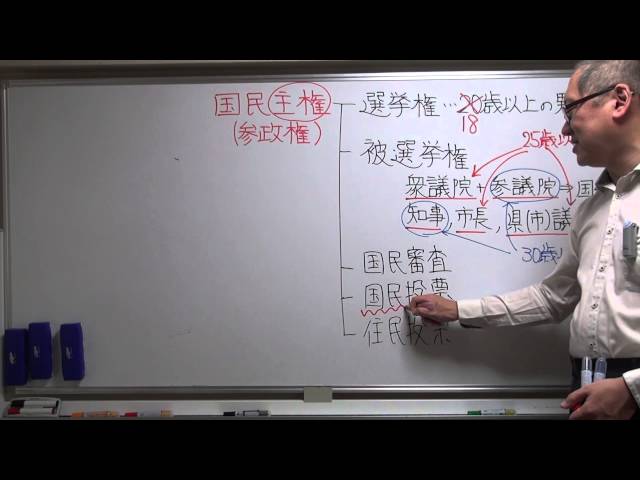 国民主権 選挙権…20歳以上の
18
(参政権)
被選挙権
25歳以
衆議院+参議院⇒国
知事,市長,県(市)議
30歳
国民審査
国民投票
住民投票